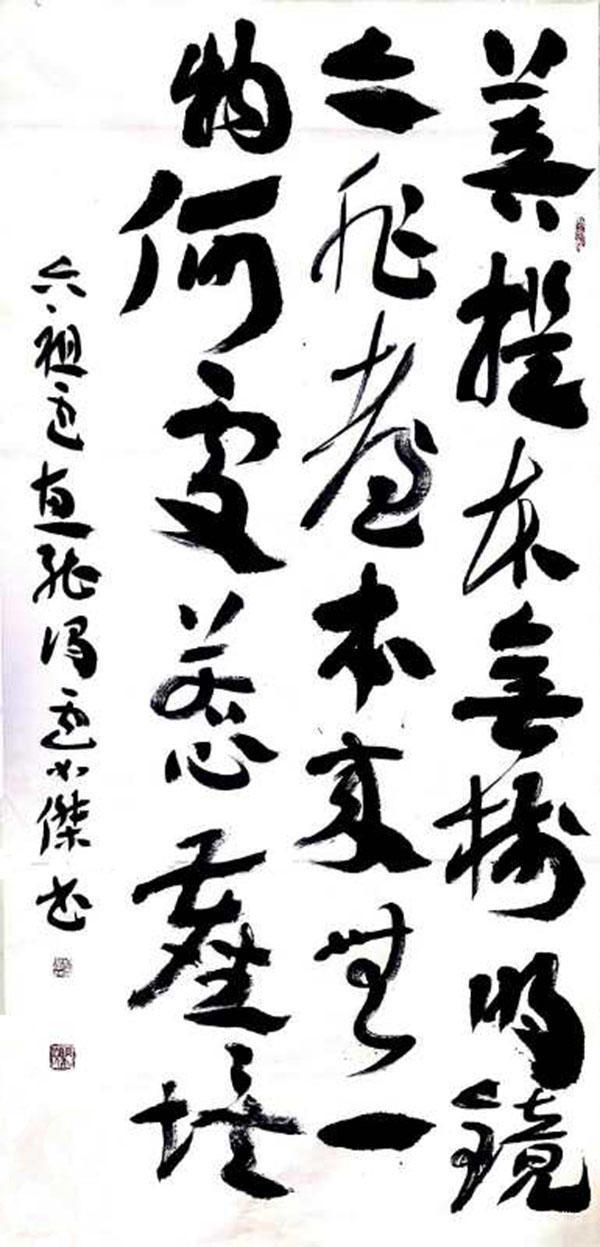 菩提本無樹明鏡
亦非臺本來無一
物何處惹塵埃
六祖盧惠能偈盧傑書